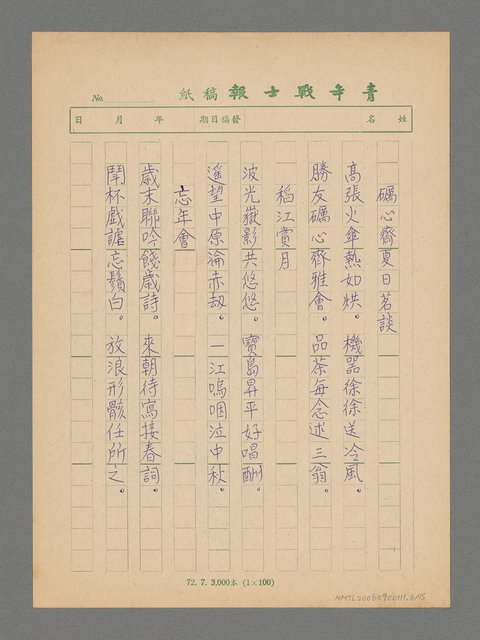 青年戰士報稿紙
No.
姓名　發稿日期　年　月　日
礪心齋夏日茗談
高張火傘熱如烘。機器徐徐送冷風。
勝友礪心齋雅會。品茶每念述三翁。
稻江賞月
波光嶽影共悠悠。寶島昇平好唱酬。
遙望中原淪赤劫。一江嗚咽泣中秋。
忘年會
歲末聯吟餞歲詩。來朝待寫接春詞。
鬥杯戲謔忘鬚白。放浪形骸任所之。
72. 7. 3,000本 (1×100)